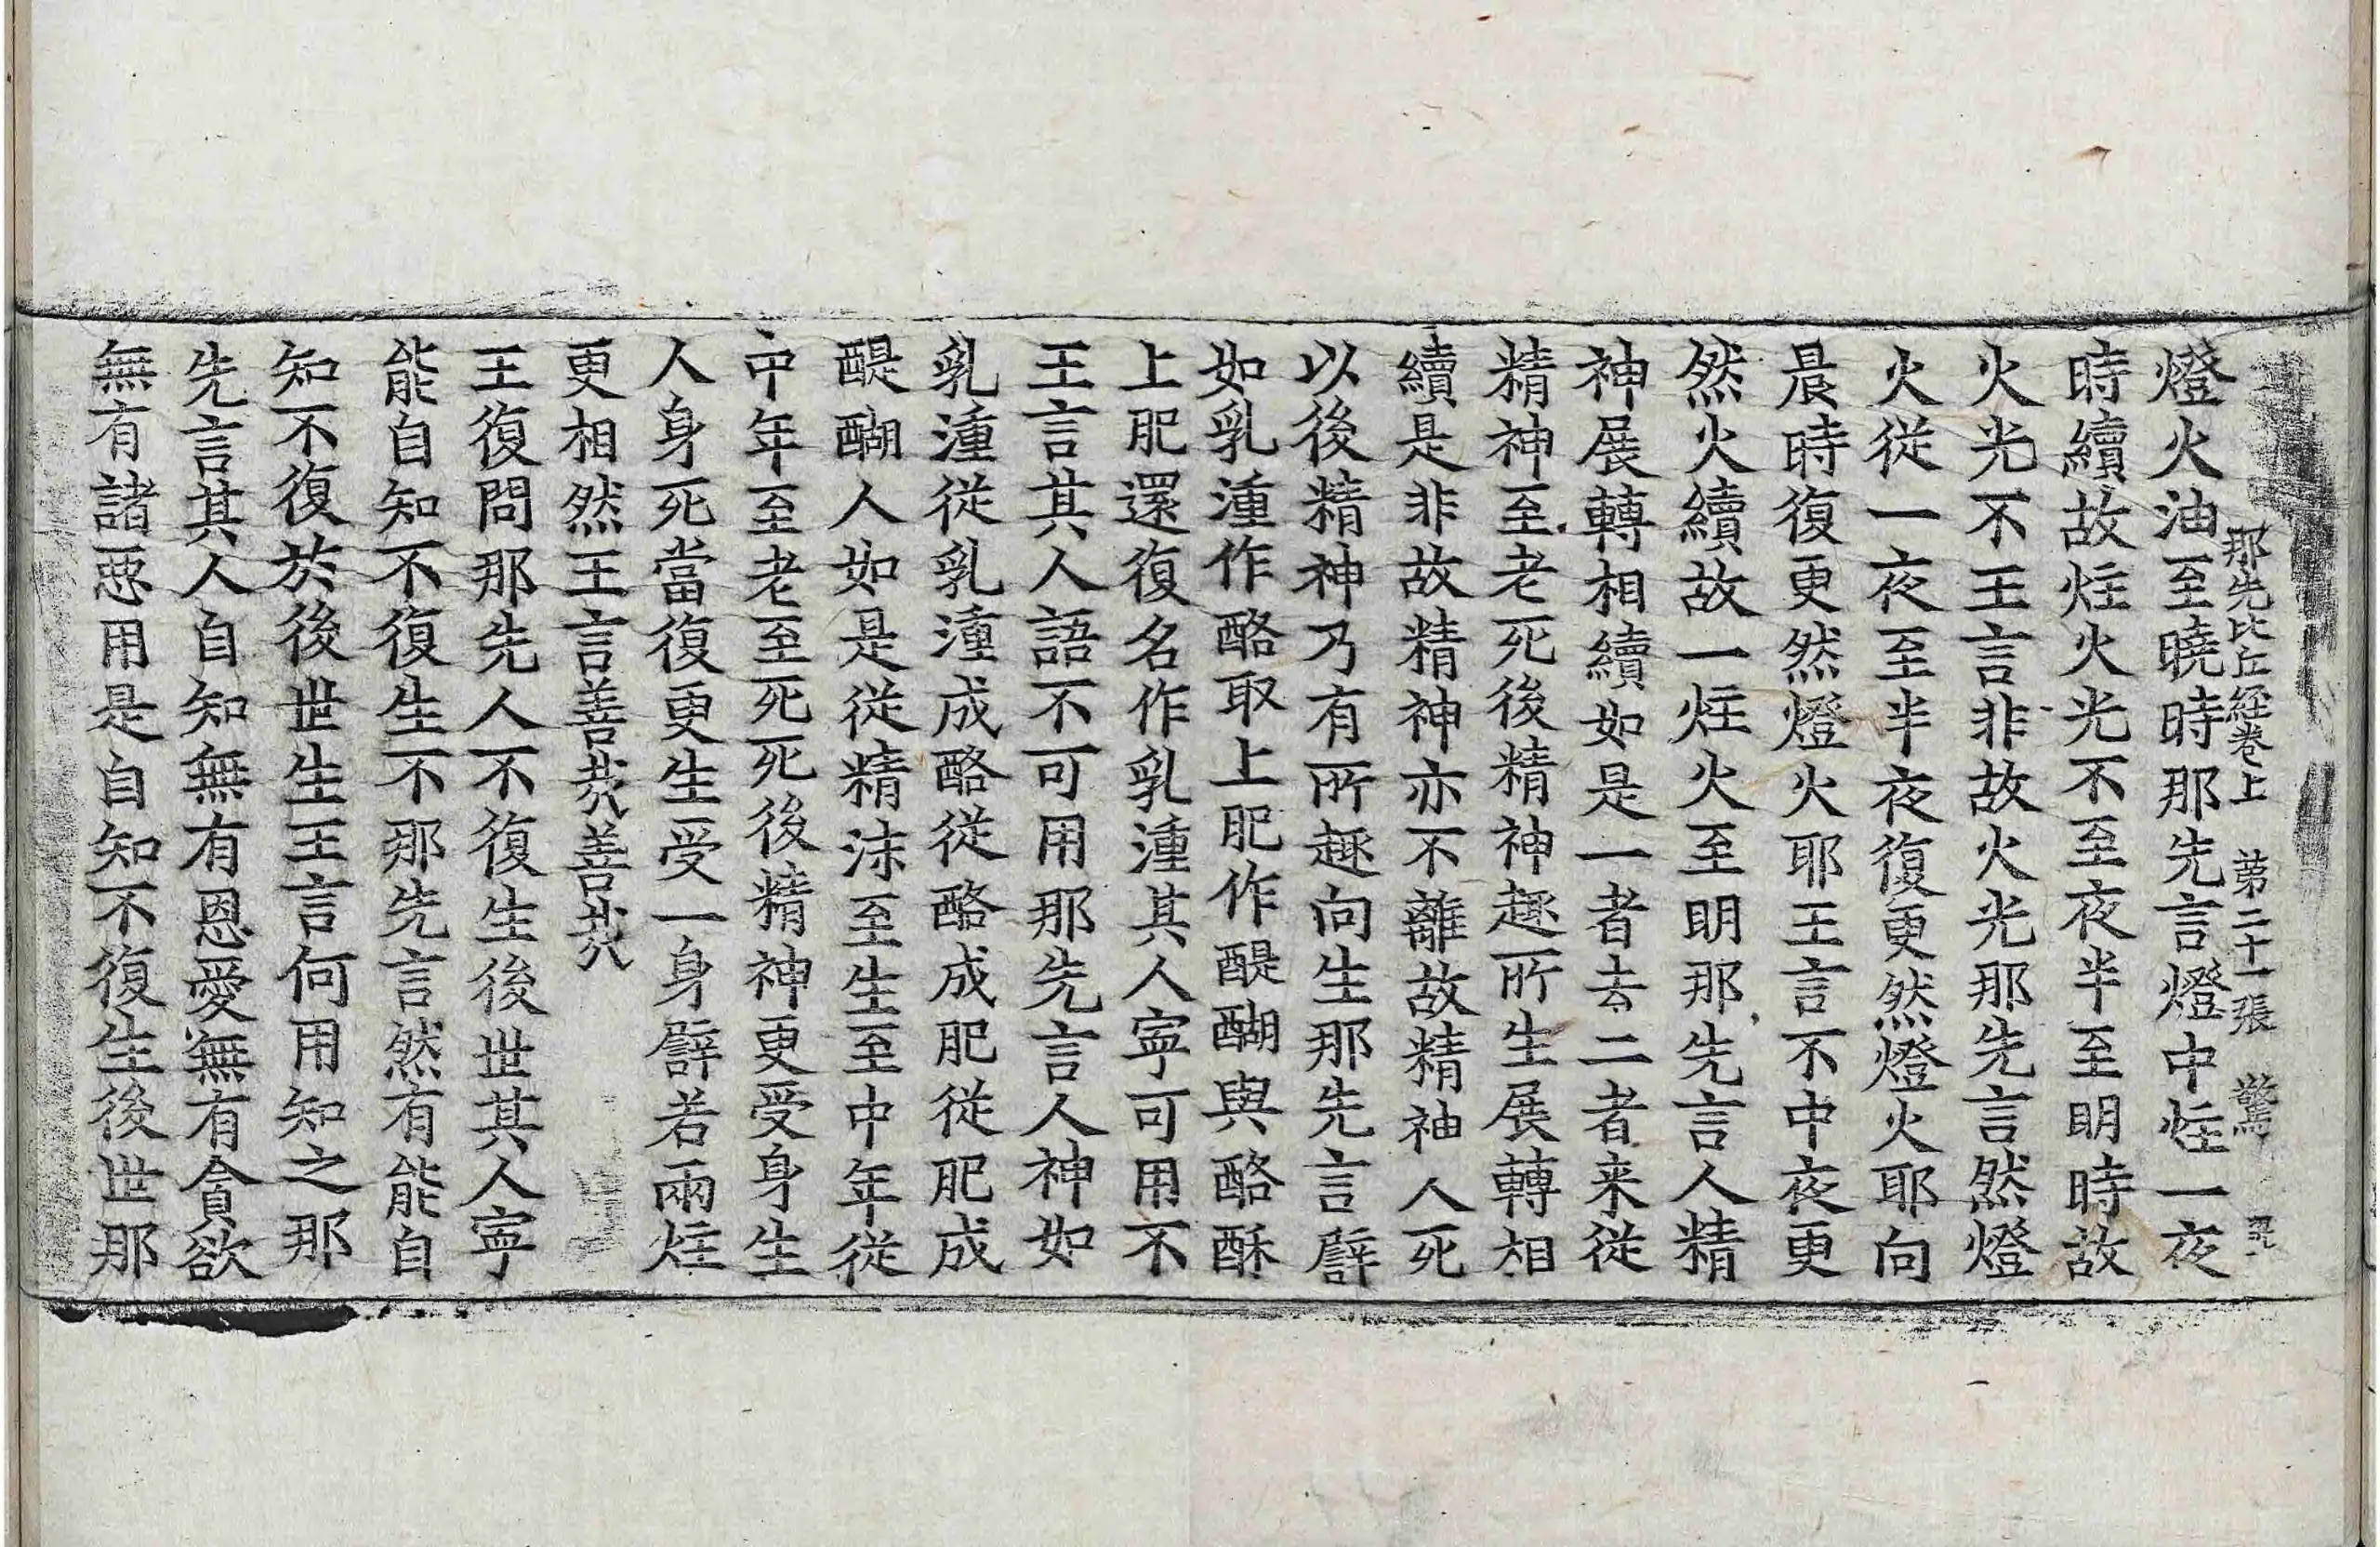 那先比丘経卷上　第二十一張　驚
燈火油至曉時那先言燈中炷一夜
時續故炷火光不至夜半至明時故
火光不王言非故火光那先言然燈
火從一夜至半夜復更然燈火耶向
晨時復更然燈火耶王言不中夜更
然火續故一炷火至明那先言人精
神展轉相續如是一者去二者来從
精神至老死後精神趣所生展轉相
續是非故精神亦不離故精神人死
以後精神乃有所趣向生那先言譬
如乳湩作酪取上肥作醍醐與酪酥
上肥還復名作乳湩其人寧可用不
王言其人語不可用那先言人神如
乳湩從乳湩成酪從酪成肥從肥成
醍醐人如是從精沫至生至中年從
中年至老至死死後精神更受身生
人身死當復更生受一身譬若兩炷
更相然王言善哉善哉
王復問那先人不復生後世其人寧
能自知不復生不那先言然有能自
知不復於後世生王言何用知之那
先言其人自知無有恩愛無有貪欲
無有諸惡用是自知不復生後世那